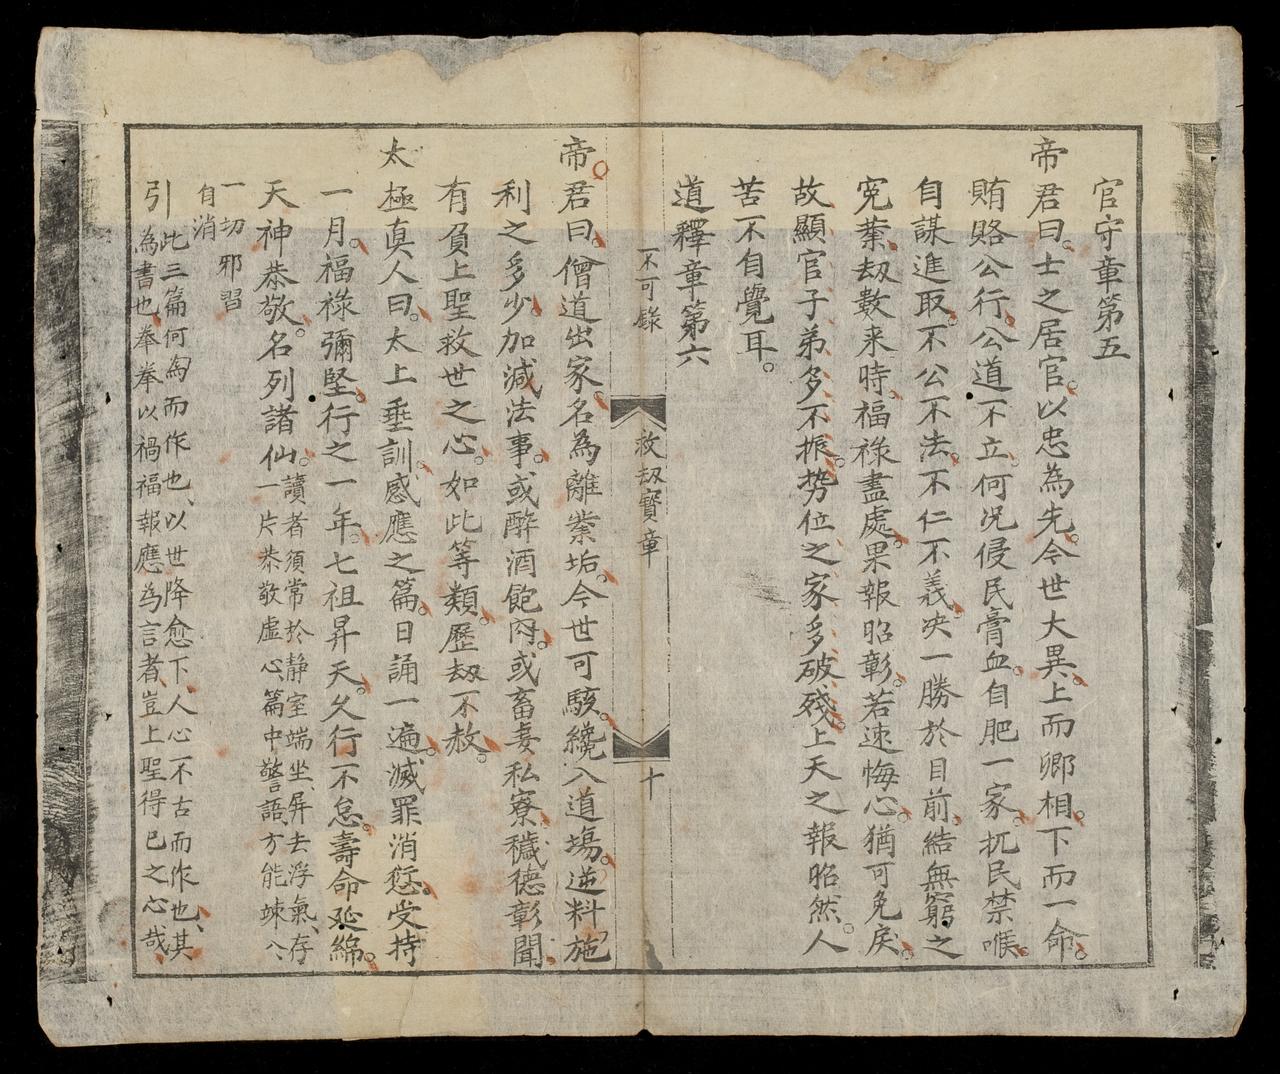 官守章第五
帝君曰。士之居官。以忠為先。今世大異。上而卿相。下而一命。
賄賂公行。公道不立。何況侵民膏血。自肥一家。扼民禁喉。
自謀進取。不公不法。不仁不義。決一勝於目前。結無窮之
冤業。劫數来時。福祿盡處。果報昭彰。若速悔心。猶可免戾。
故顯官子弟多不振。势位之家多破殘。上天之報昭然。人
苦不自覺耳。
道釋章第六
不可錄
救劫寶章
十
帝君曰。僧道出家。名為離紫垢。今世可駭。纔入道場。逆料施
利之多少。加減法事。或醉酒飽肉。或畜妾私寮。穢德彰聞。
有負上聖救世之心。如此等類。歷劫不赦。
太極真人曰。太上垂訓。感應之篇。日誦一遍。滅罪消愆。受持
一月。福祿彌堅。行之一年。七祖昇天。久行不怠。壽命延綿。
天神恭敬。名列諸仙。
讀者須常於静室端坐、屏去浮氣、存
一片恭敬虛心、篇中警語、方能竦入、
一切邪習
自消
引
此三篇何為而作也、以世降愈下、人心不古而作也、其
為書也、拳拳以禍福報應為言者、豈上聖得已之心哉、